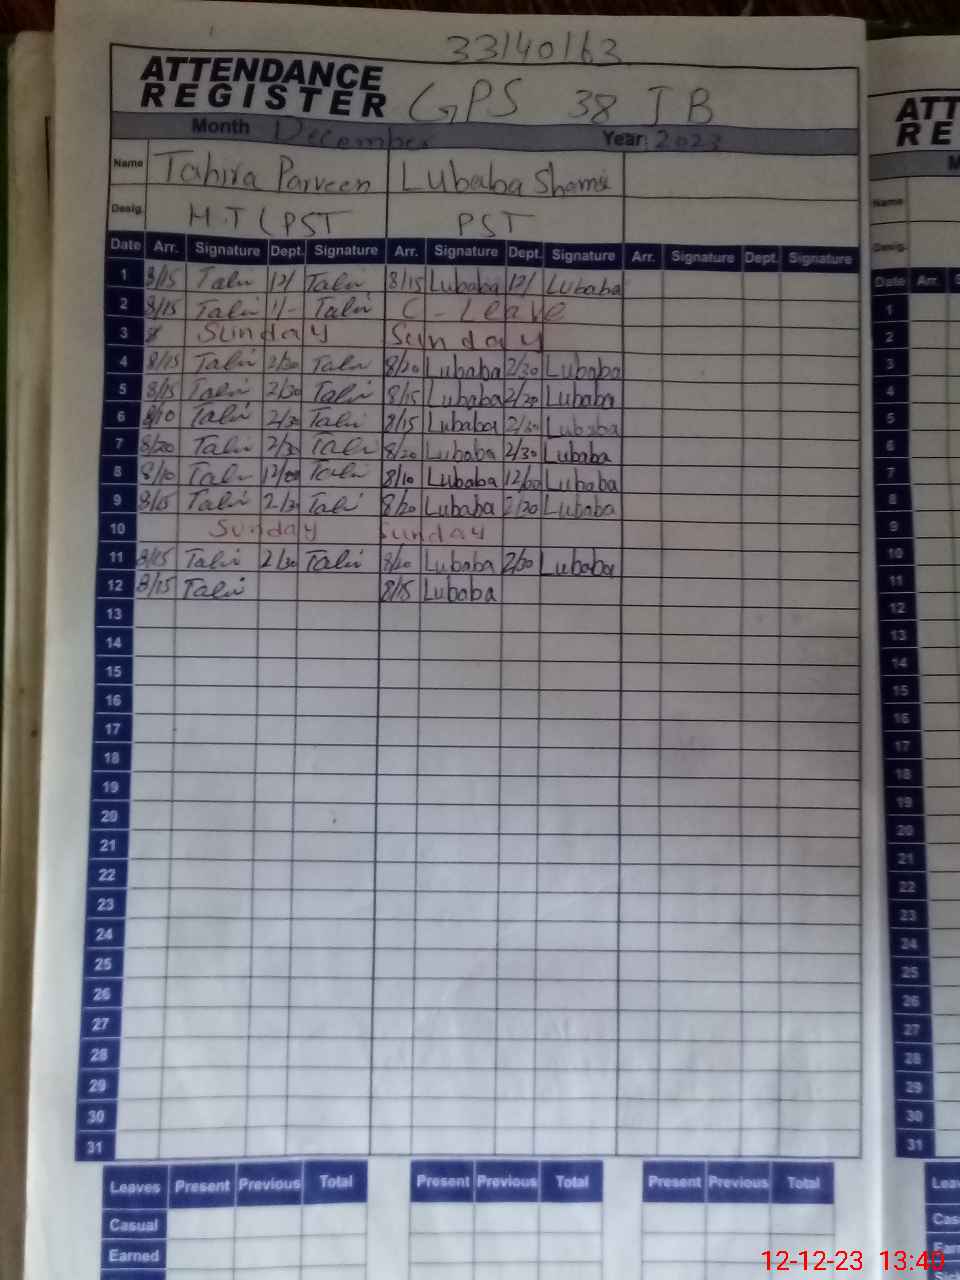 33140163
ATTENDANCE
REGISTER GPS 38 JB
Month December Year: 2023
Name Tahira Parveen Lubaba Shamsi
Desig. H.T (PST PST
Date Arr. Signature Dept. Signature Arr. Signature Dept. Signature Arr. Signature Dept. Signature
1 8/15 Tahir 12/ Tahir 8/15 Lubaba 12/ Lubaba
2 8/15 Tahir 1/- Tahir C - Leave
3 Sunday Sunday
4 8/15 Tahir 2/30 Tahir 8/20 Lubaba 2/30 Lubaba
5 8/15 Tahir 2/30 Tahir 8/15 Lubaba 2/20 Lubaba
6 8/10 Tahir 2/30 Tahir 8/15 Lubaba 2/30 Lubaba
7 8/20 Tahir 2/30 Tahir 8/20 Lubaba 2/30 Lubaba
8 8/10 Tahir 12/00 Tahir 8/10 Lubaba 12/00 Lubaba
9 8/15 Tahir 2/30 Tahir 8/20 Lubaba 2/20 Lubaba
10 Sunday Sunday
11 8/15 Tahir 2/30 Tahir 8/20 Lubaba 2/30 Lubaba
12 8/15 Tahir 8/15 Lubaba
13
14
15
16
17
18
19
20
21
22
23
24
25
26
27
28
29
30
31
Leaves Present Previous Total Present Previous Total Present Previous Total
Casual
Earned
ATT
RE
M
Name
Desig.
Date Arr. S
1
2
3
4
5
6
7
8
9
10
11
12
13
14
15
16
17
18
19
20
21
22
23
24
25
26
27
28
29
30
31
Lea
Cas
Ear
12-12-23 13:40